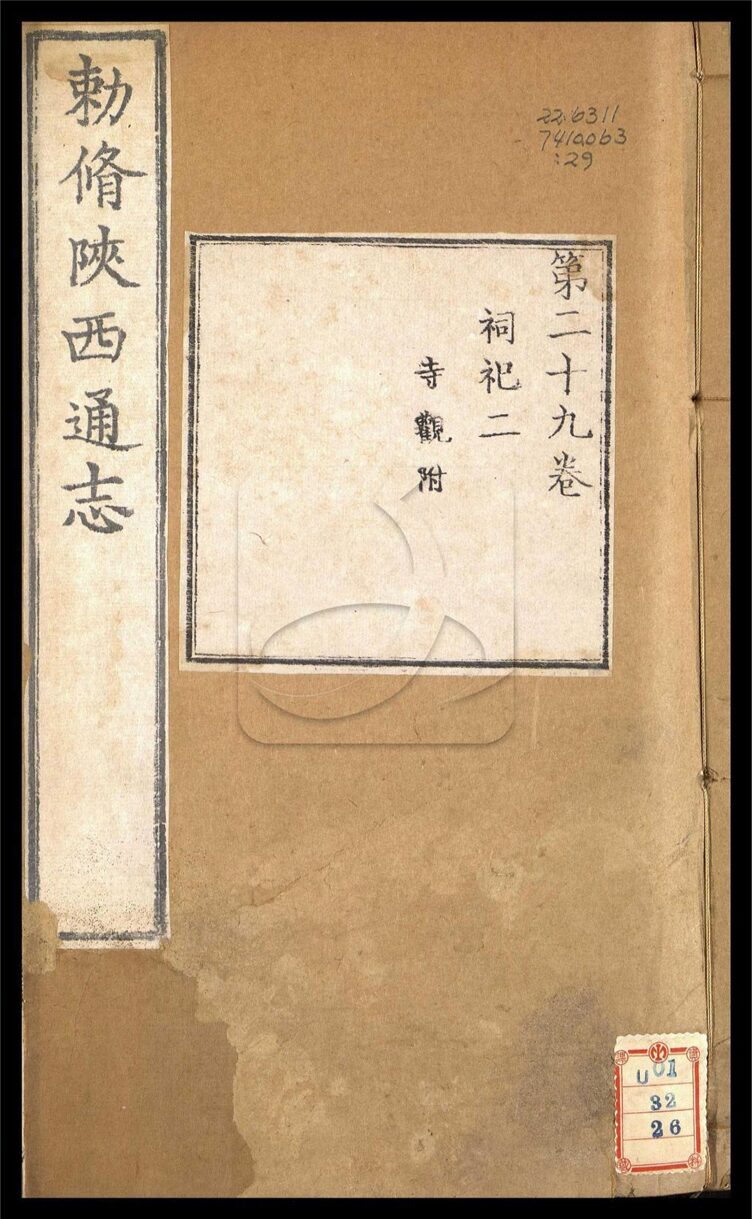 勅脩陝西通志
第二十九卷
祠祀二
寺觀附
22.6311
7410.063
:29
U01
32
26